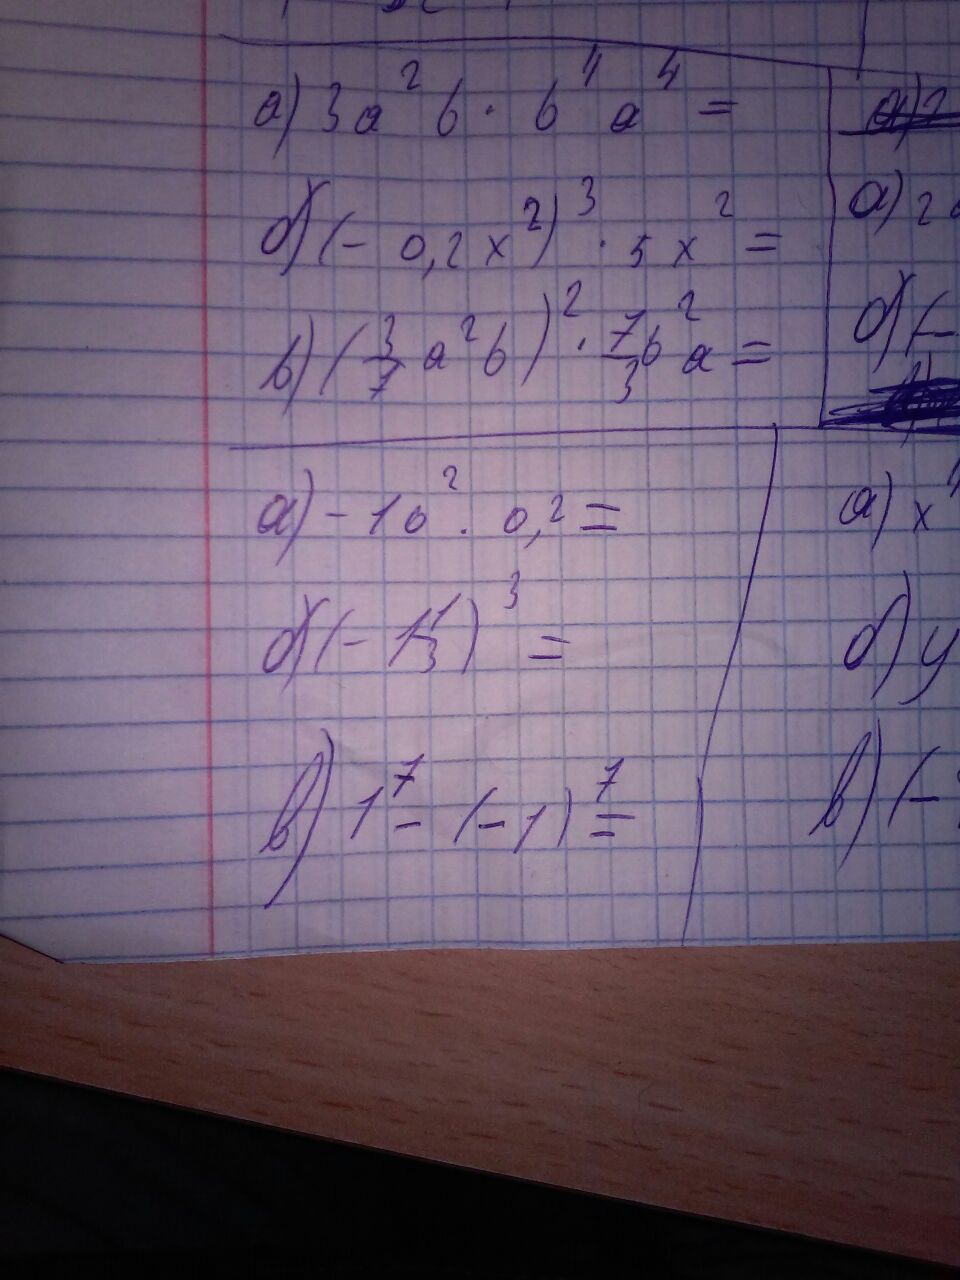 а) 3a²b · b⁴a⁴ =
б) (- 0,2x²)³ · 5x² =
в) (3/7 a²b)² · 7/3 b²a =
а) 2
б) (-
а) -10² · 0,2 =
б) (- 1 1/3)³ =
в) 1⁷ - (-1)⁷ =
а) x
б) y
в) (-